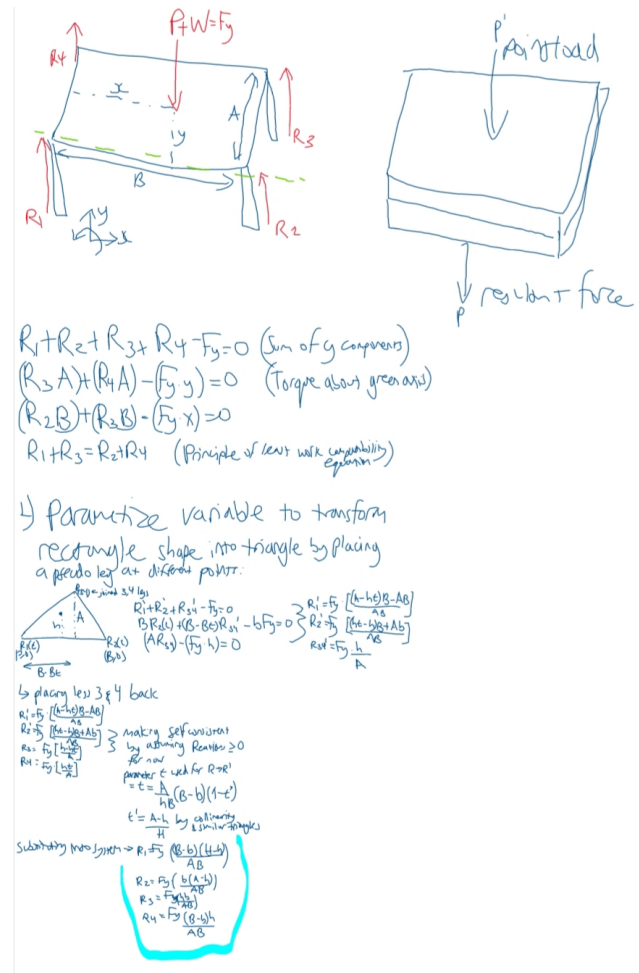 P+W=Fy
R4
x
y
A
R3
B
R1
y
x
R2
P'
point load
P
resultant force
R1+R2+R3+R4-Fy=0 (Sum of y components)
(R3A)+(R4A)-(Fy·y)=0 (Torque about green axis)
(R2B)+(R3B)-(Fy·x)=0
R1+R3=R2+R4 (Principle of least work compatibility equation)
Parametize variable to transform
rectangle shape into triangle by placing
a pseudo leg at different points:
joined 3,4 legs
h
A
R1(t)
R2(t)
(B,0)
B-Bt
R1'+R2'+R34'-Fy=0
BR2(t)+(B-Bt)R34'-bFy=0
(AR34)-(Fy·h)=0
R1'=Fy·[(A-ht)B-AB]/AB
R2'=Fy[(ht-h)B+Ab]/AB
R34'=Fy h/A
↳ placing legs 3 & 4 back
R1'=Fy·[(A-ht)B-AB]/AB
R2'=Fy[(ht-h)B+Ab]/AB
R3=Fy[h-ht/A]
R4=Fy[ht/A]
making self consistent
by assuming Reaction ≥0
for now
parameter t used for R→R'
=t=A/hB(B-b)(1-t')
t'=A-h/H by collinearity
& similar triangles
Substituting into system → R1=Fy (B-b)(H-h)/AB
R2=Fy(b(A-h)/AB)
R3=Fy(hb/AB)
R4=Fy(B-b)h/AB